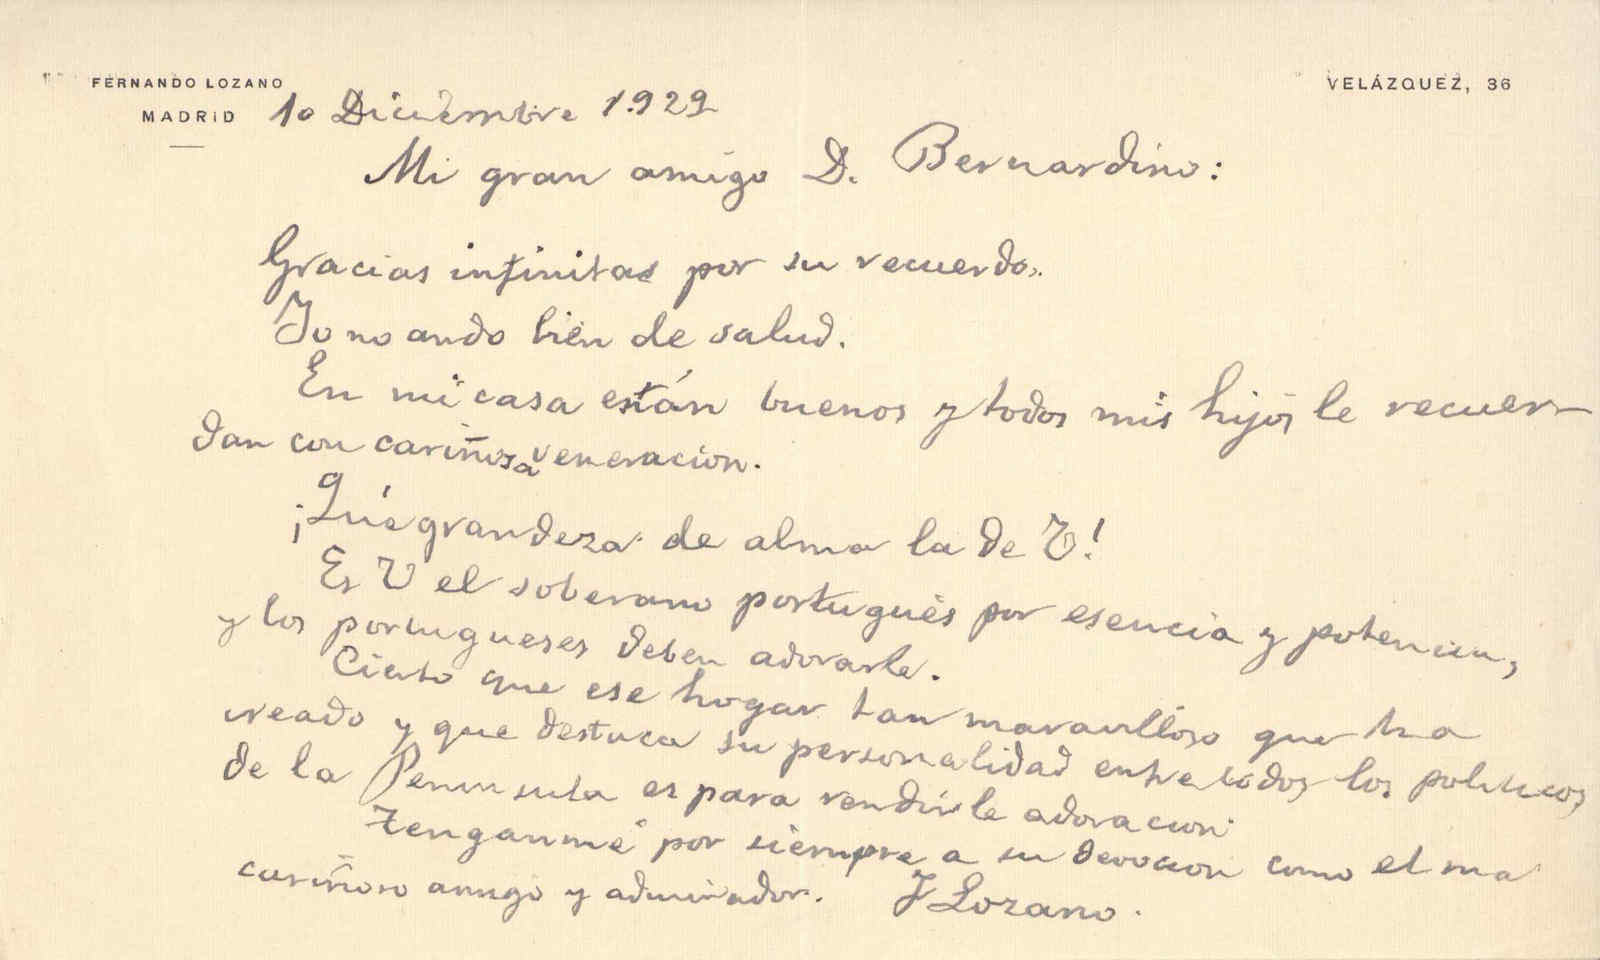 FERNANDO LOZANO
MADRID
VELÁZQUEZ, 36
10 Diciembre 1.929
Mi gran amigo D. Bernardino:
Gracias infinitas por su recuerdo.
Yo no ando bien de salud.
En mi casa están buenos y todos mis hijos le recuer-
dan con cariñosa veneracion.
¡Qué grandeza de alma la de V!
Es V el soberano portugués por esencia y potencia,
y los portugueses deben adorarle.
Cierto que ese hogar tan maravilloso que ha
creado y que destaca su personalidad entre todos los politicos
de la Peninsula es para rendirle adoracion
Tenganme por siempre a su devocion como el ma
cariñoso amigo y admirador. F Lozano.